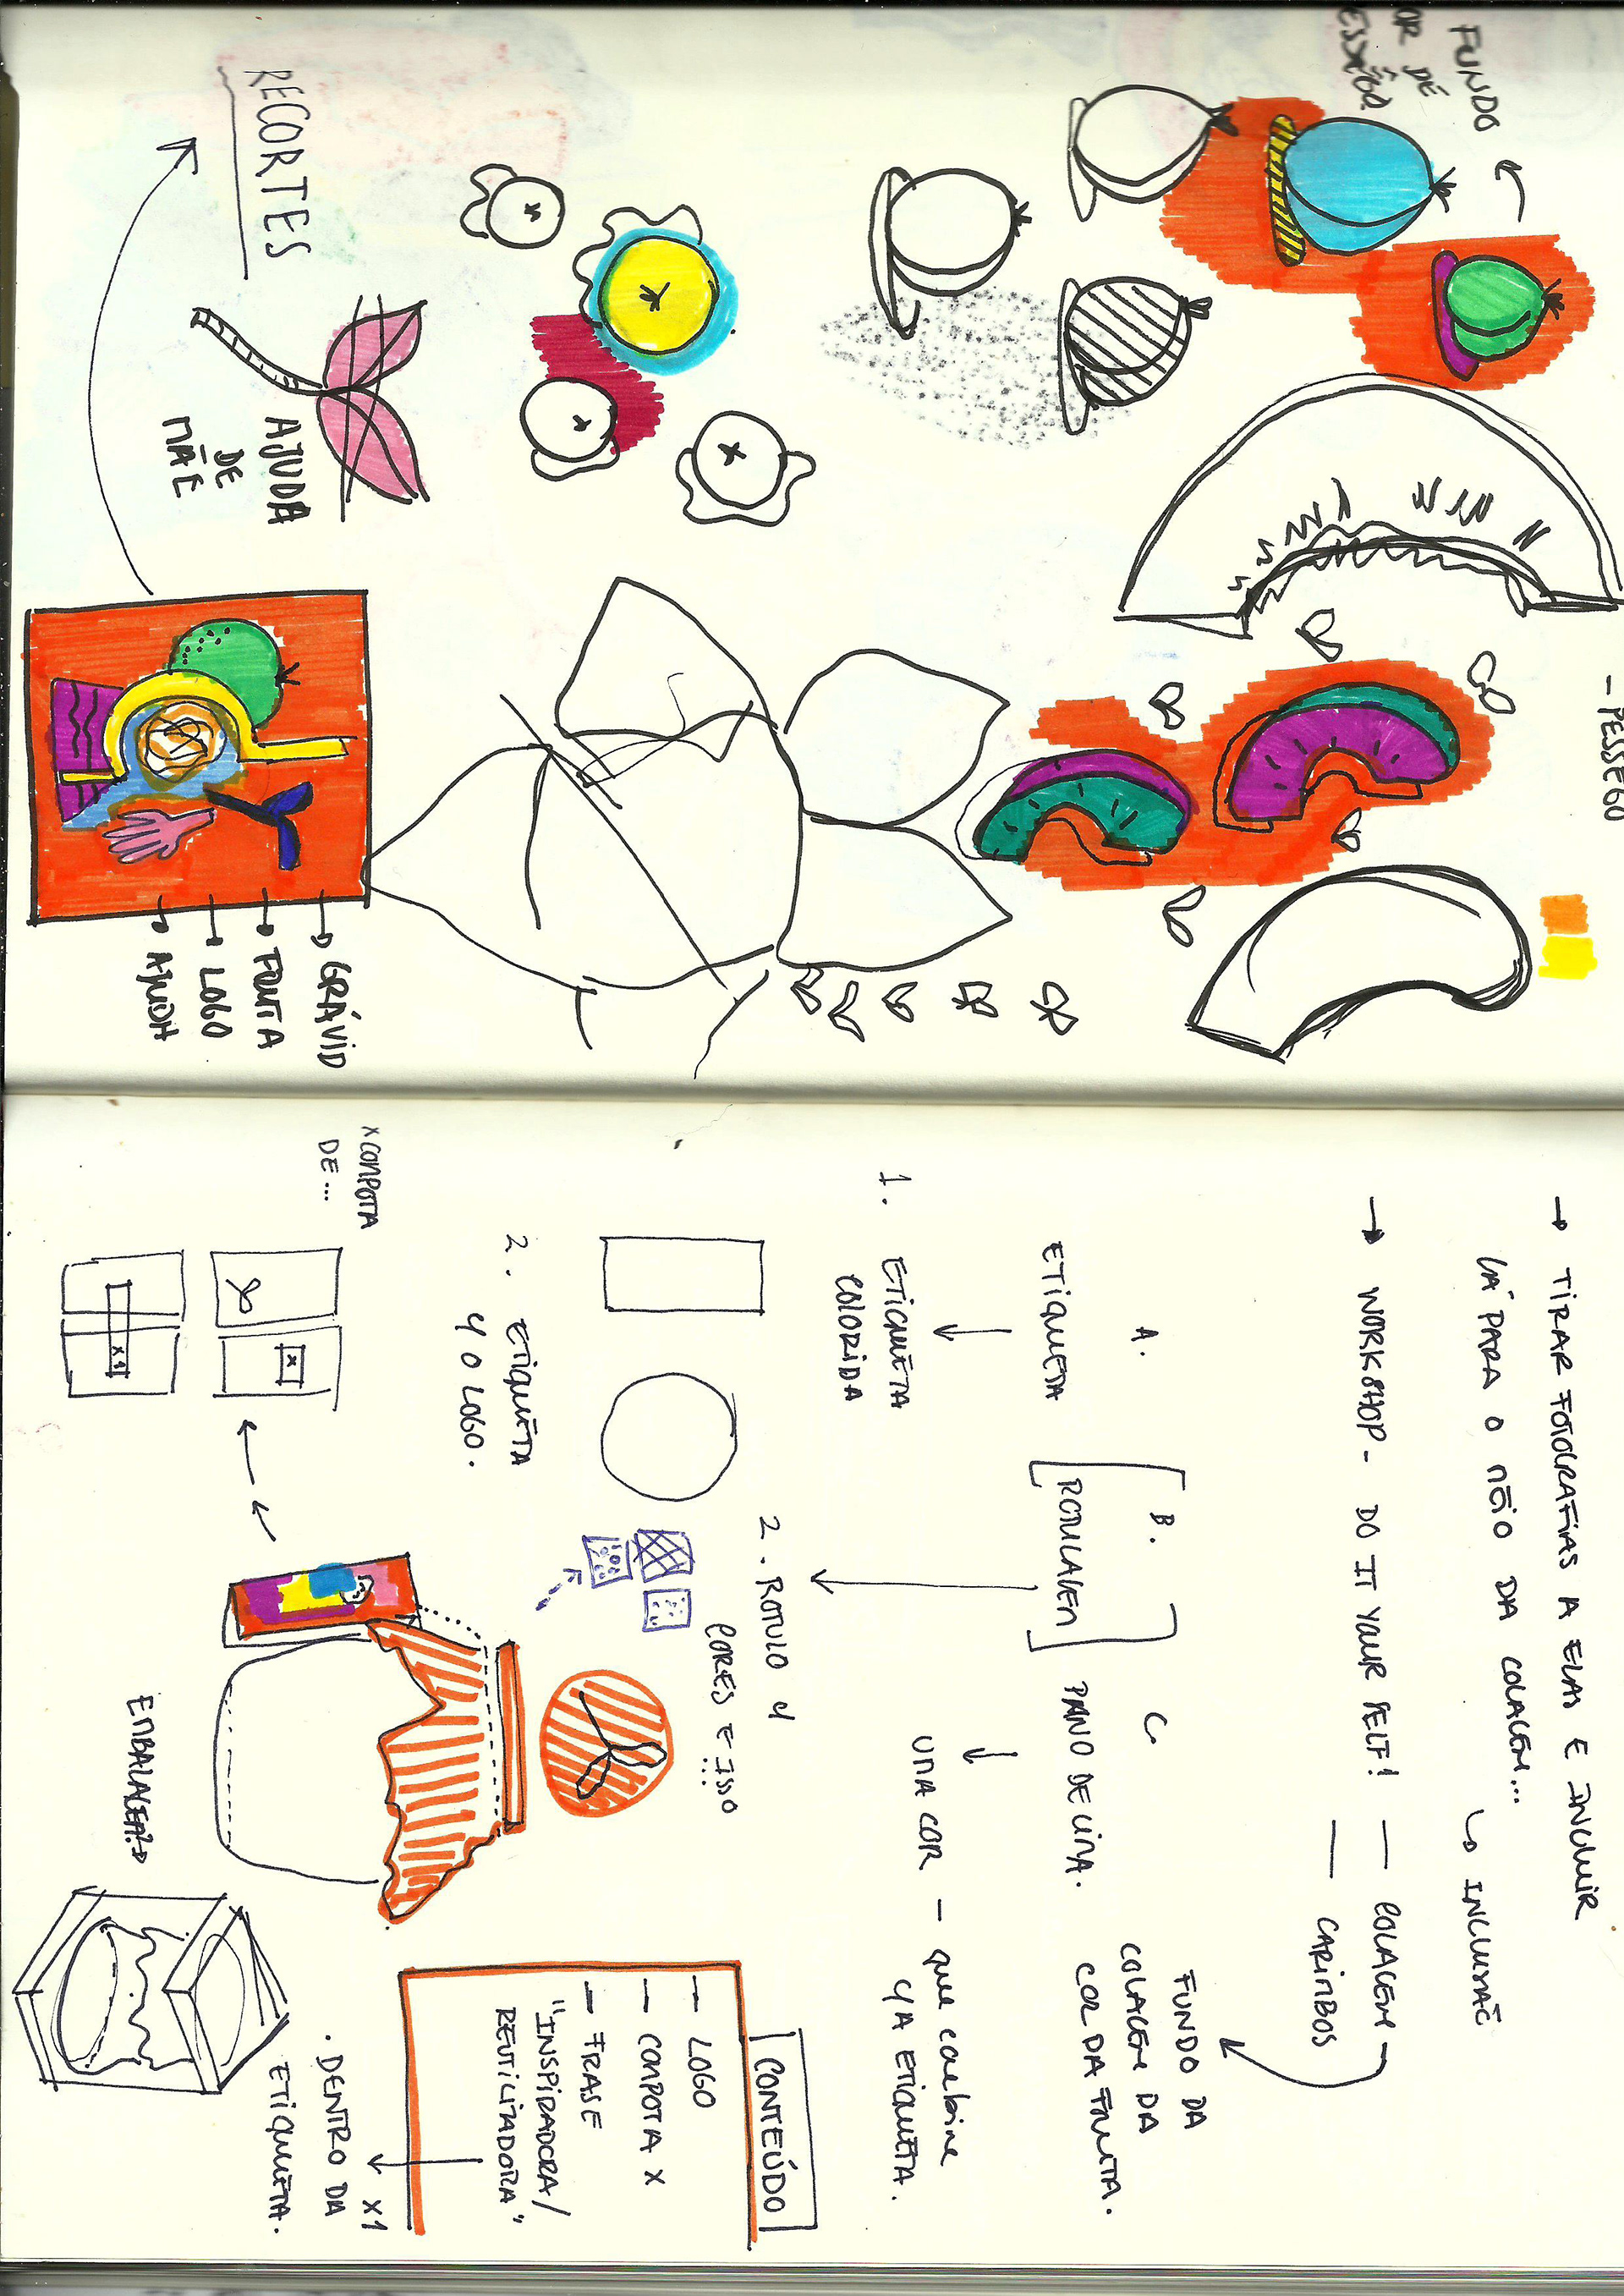 FUNDO
- PESSEGO
RECORTES
AJUDA
DE
MÃE
→ GRÁVID
→ FRUTA
→ LOGO
→ AJUDA
→ TIRAR FOTOGRAFIAS A ELAS E INCLUIR
LÁ PARA O MEIO DA COLAGEM...
→ WORKSHOP - DO IT YOUR SELF!
— COLAGEM
— CARIMBOS
FUNDO DA
COLAGEM DA
COR DA FRUTA.
A.
ETIQUETA
B.
ROTULAGEM
C.
PANO DE CIMA.
1. ETIQUETA
COLORIDA
UMA COR — que combine
c/A ETIQUETA.
2. ROTULO c/
CORES E ISSO
...
2. ETIQUETA
c/ O LOGO.
x COMPOTA
DE...
x
x1
EMBALAGEM?
CONTEÚDO
— LOGO
— COMPOTA X
— FRASE
"INSPIRADORA/
REUTILIZADORA"
x1
. DENTRO DA
ETIQUETA.